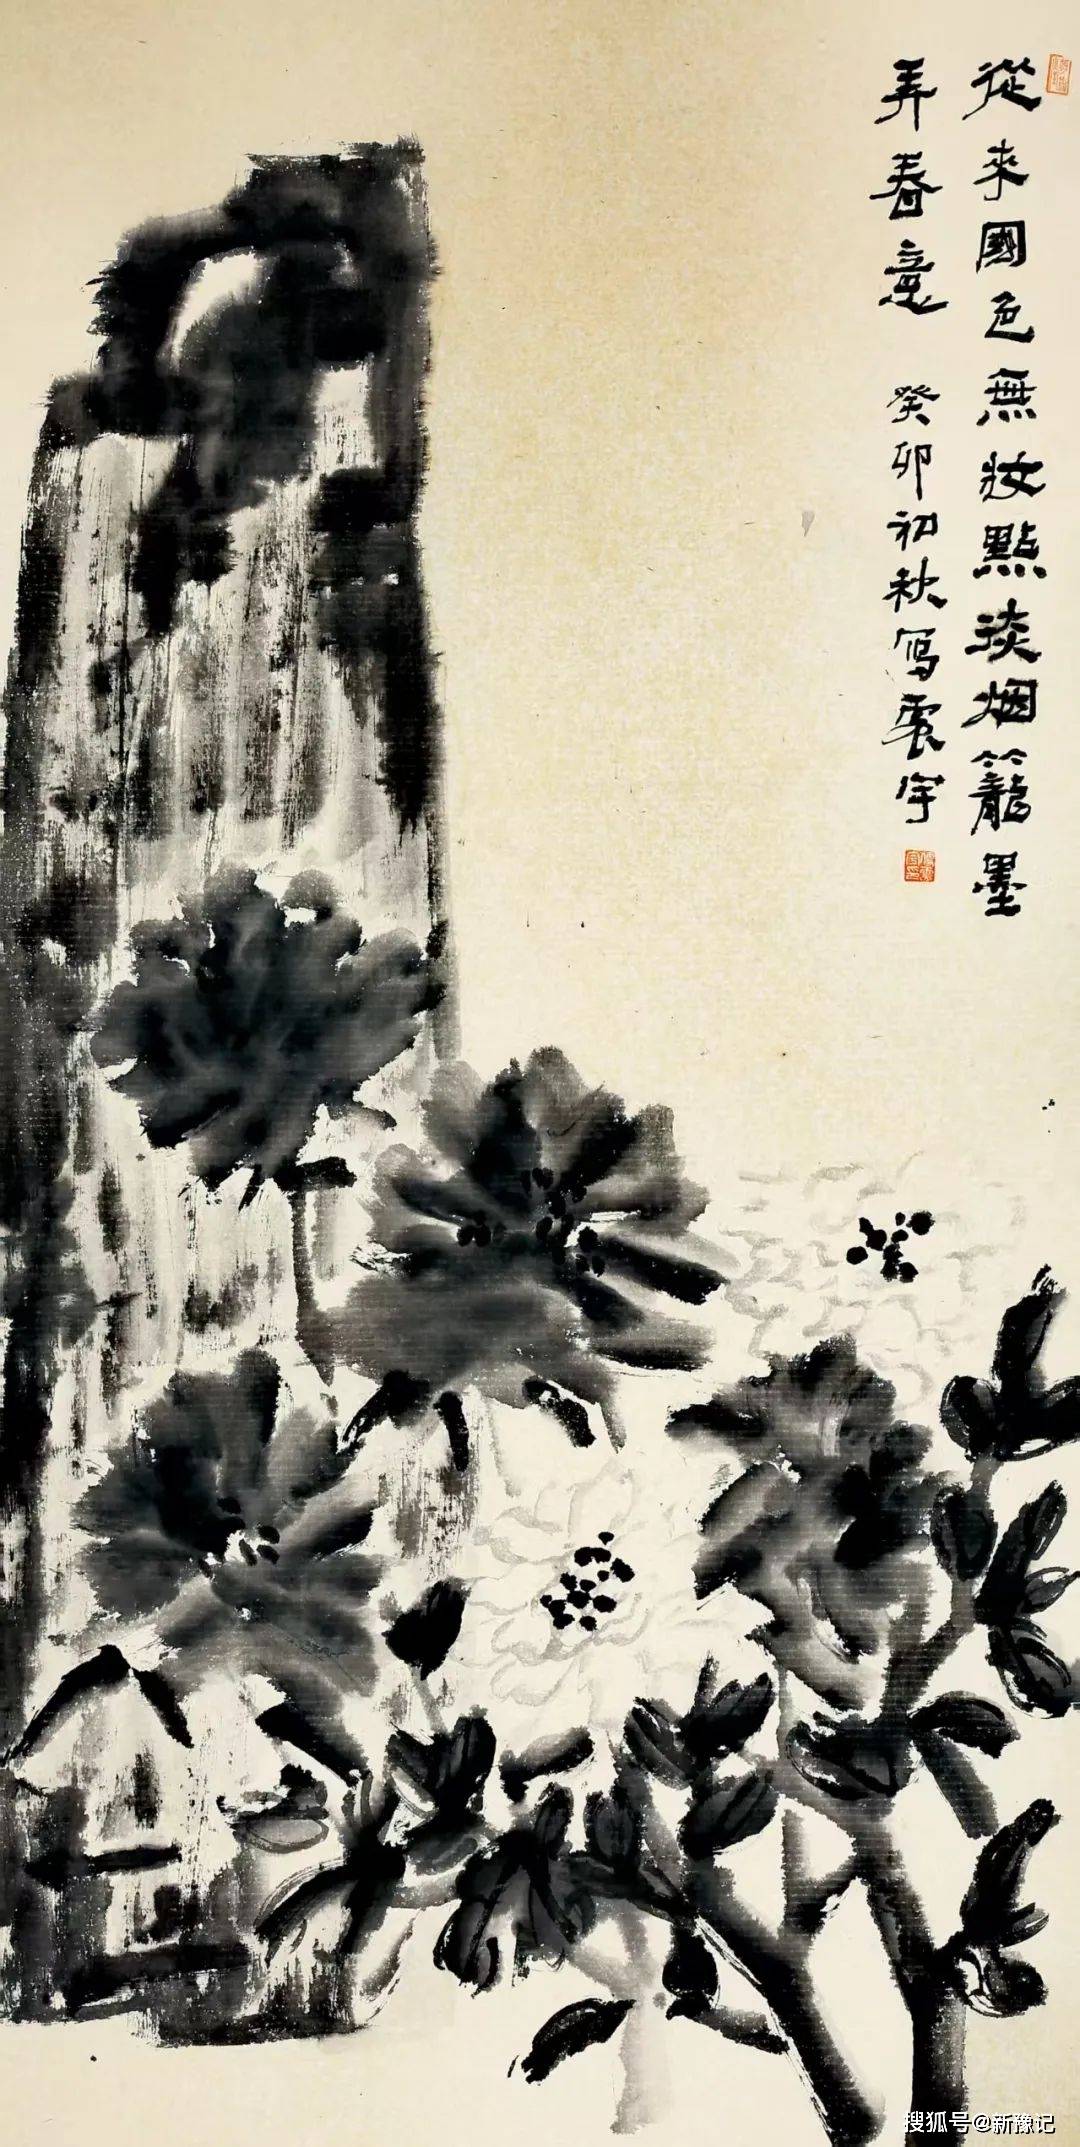 從來國色無妝點淡烟籠墨
弄春意 癸卯初秋写震宇
搜狐号@新豫记